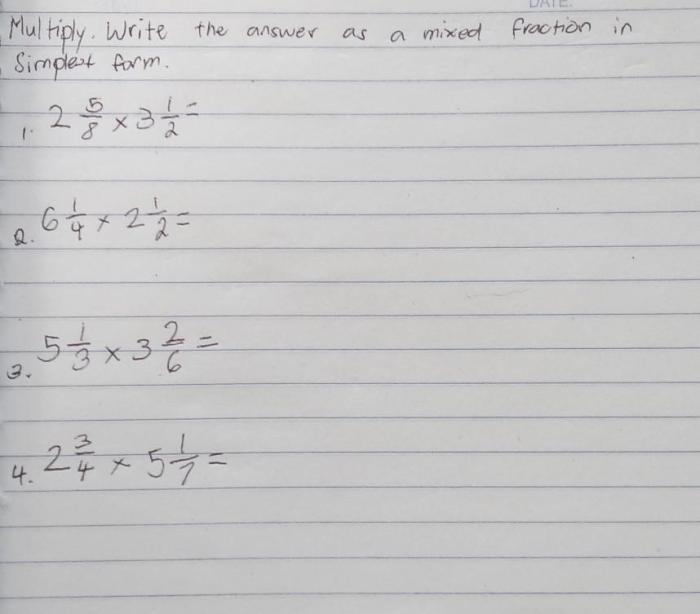 DATE:
Multiply. Write the answer as a mixed fraction in
Simplest form.
1. 2 5/8 × 3 1/2 =
2. 6 1/4 × 2 1/2 =
3. 5 1/3 × 3 2/6 =
4. 2 3/4 × 5 1/7 =